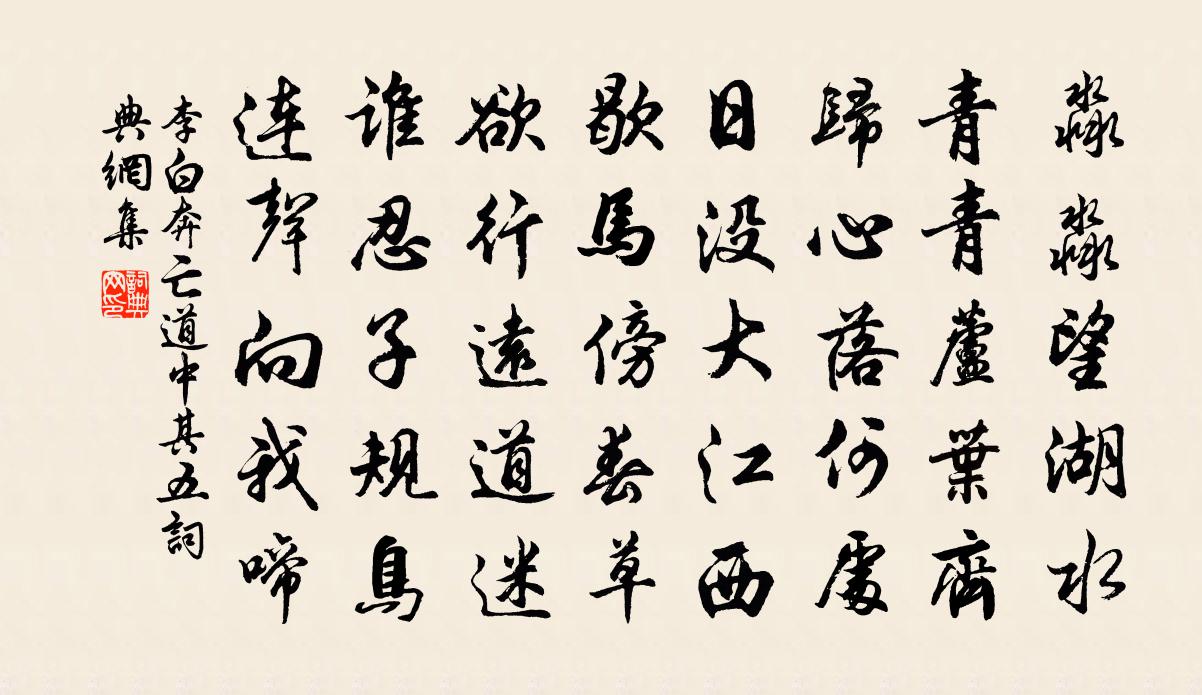 淼淼望湖水
青青蘆葉齊
歸心落何處
日没大江西
歇馬傍春草
欲行遠道迷
誰忍子規鳥
連聲向我啼
李白奔亡道中其五詞
典網集
詞典
网印